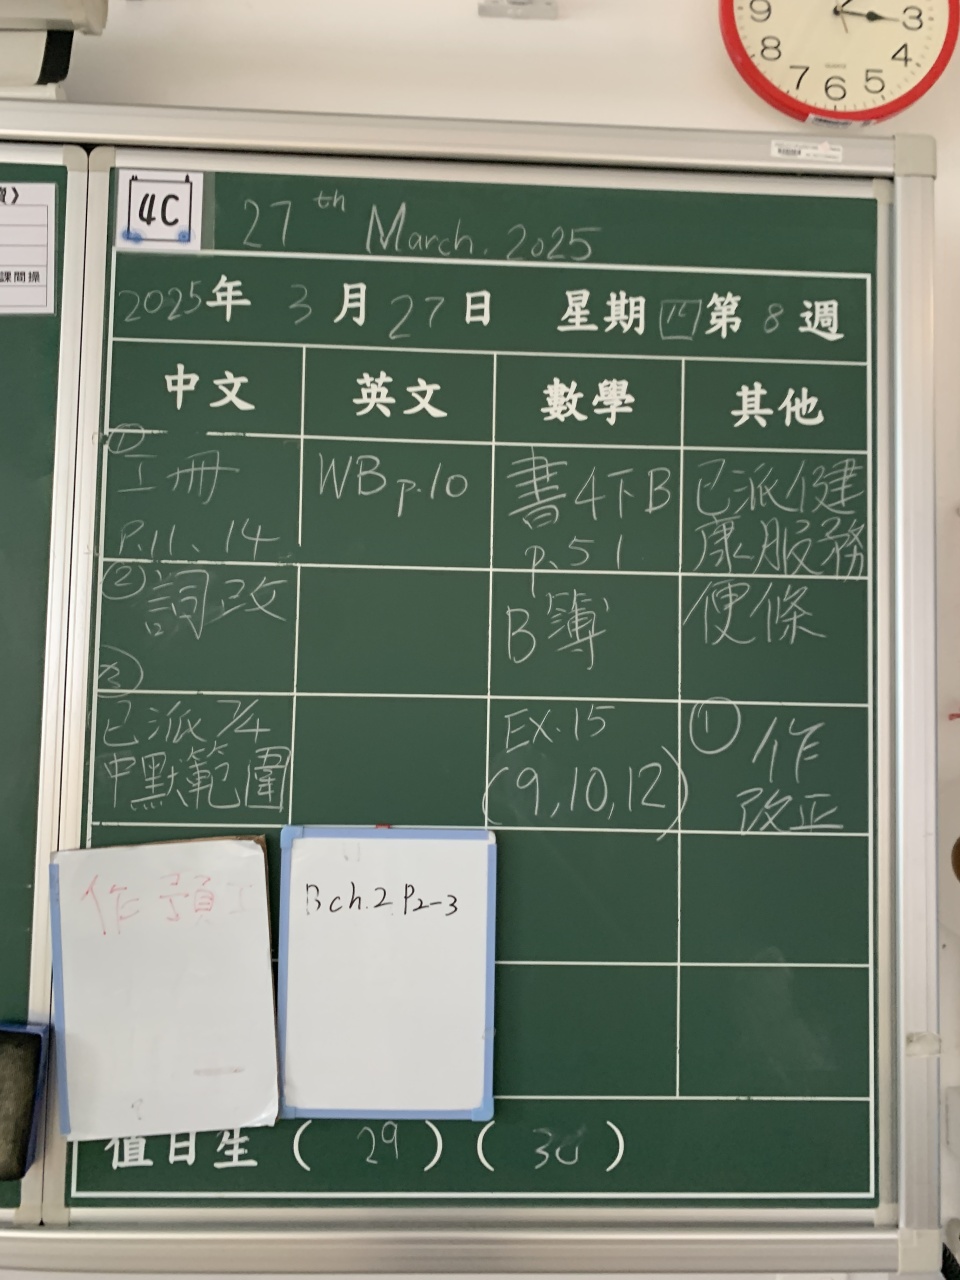 9
3
8
4
7
6
5
課間操
4C
27th March. 2025
2025年 3月27日 星期四第8週
中文 英文 數學 其他
①
工冊
P.11、14
②詞改
③
已派7/4
中默範圍
WB p.10
書4下B
p.51
B簿
EX.15
(9,10,12)
已派健
康服務
便條
① 作
改正
作預
B ch.2 P2-3
值日生 ( 29 ) ( 30 )